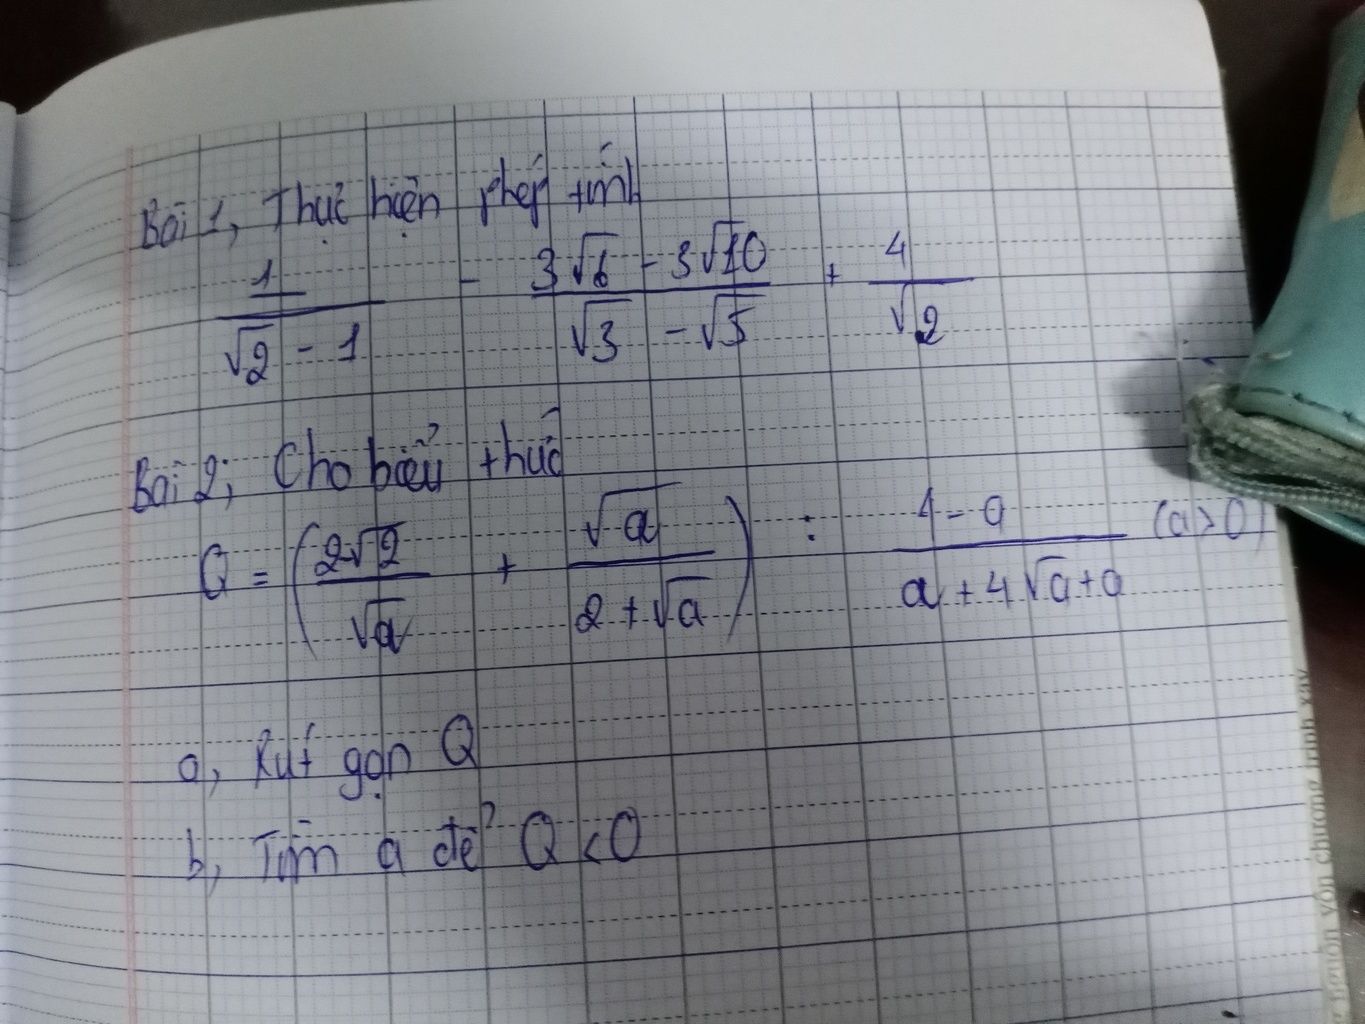 Bài 1, Thực hiện phép tính
1/(√2 - 1) - (3√6 - 3√10)/(√3 - √5) + 4/√2
Bài 2; Cho biểu thức
Q = (2√2/√a + √a/(2 + √a)) : (4 - a)/(a + 4√a + a) (a > 0)
a, Rút gọn Q
b, Tìm a để Q < 0